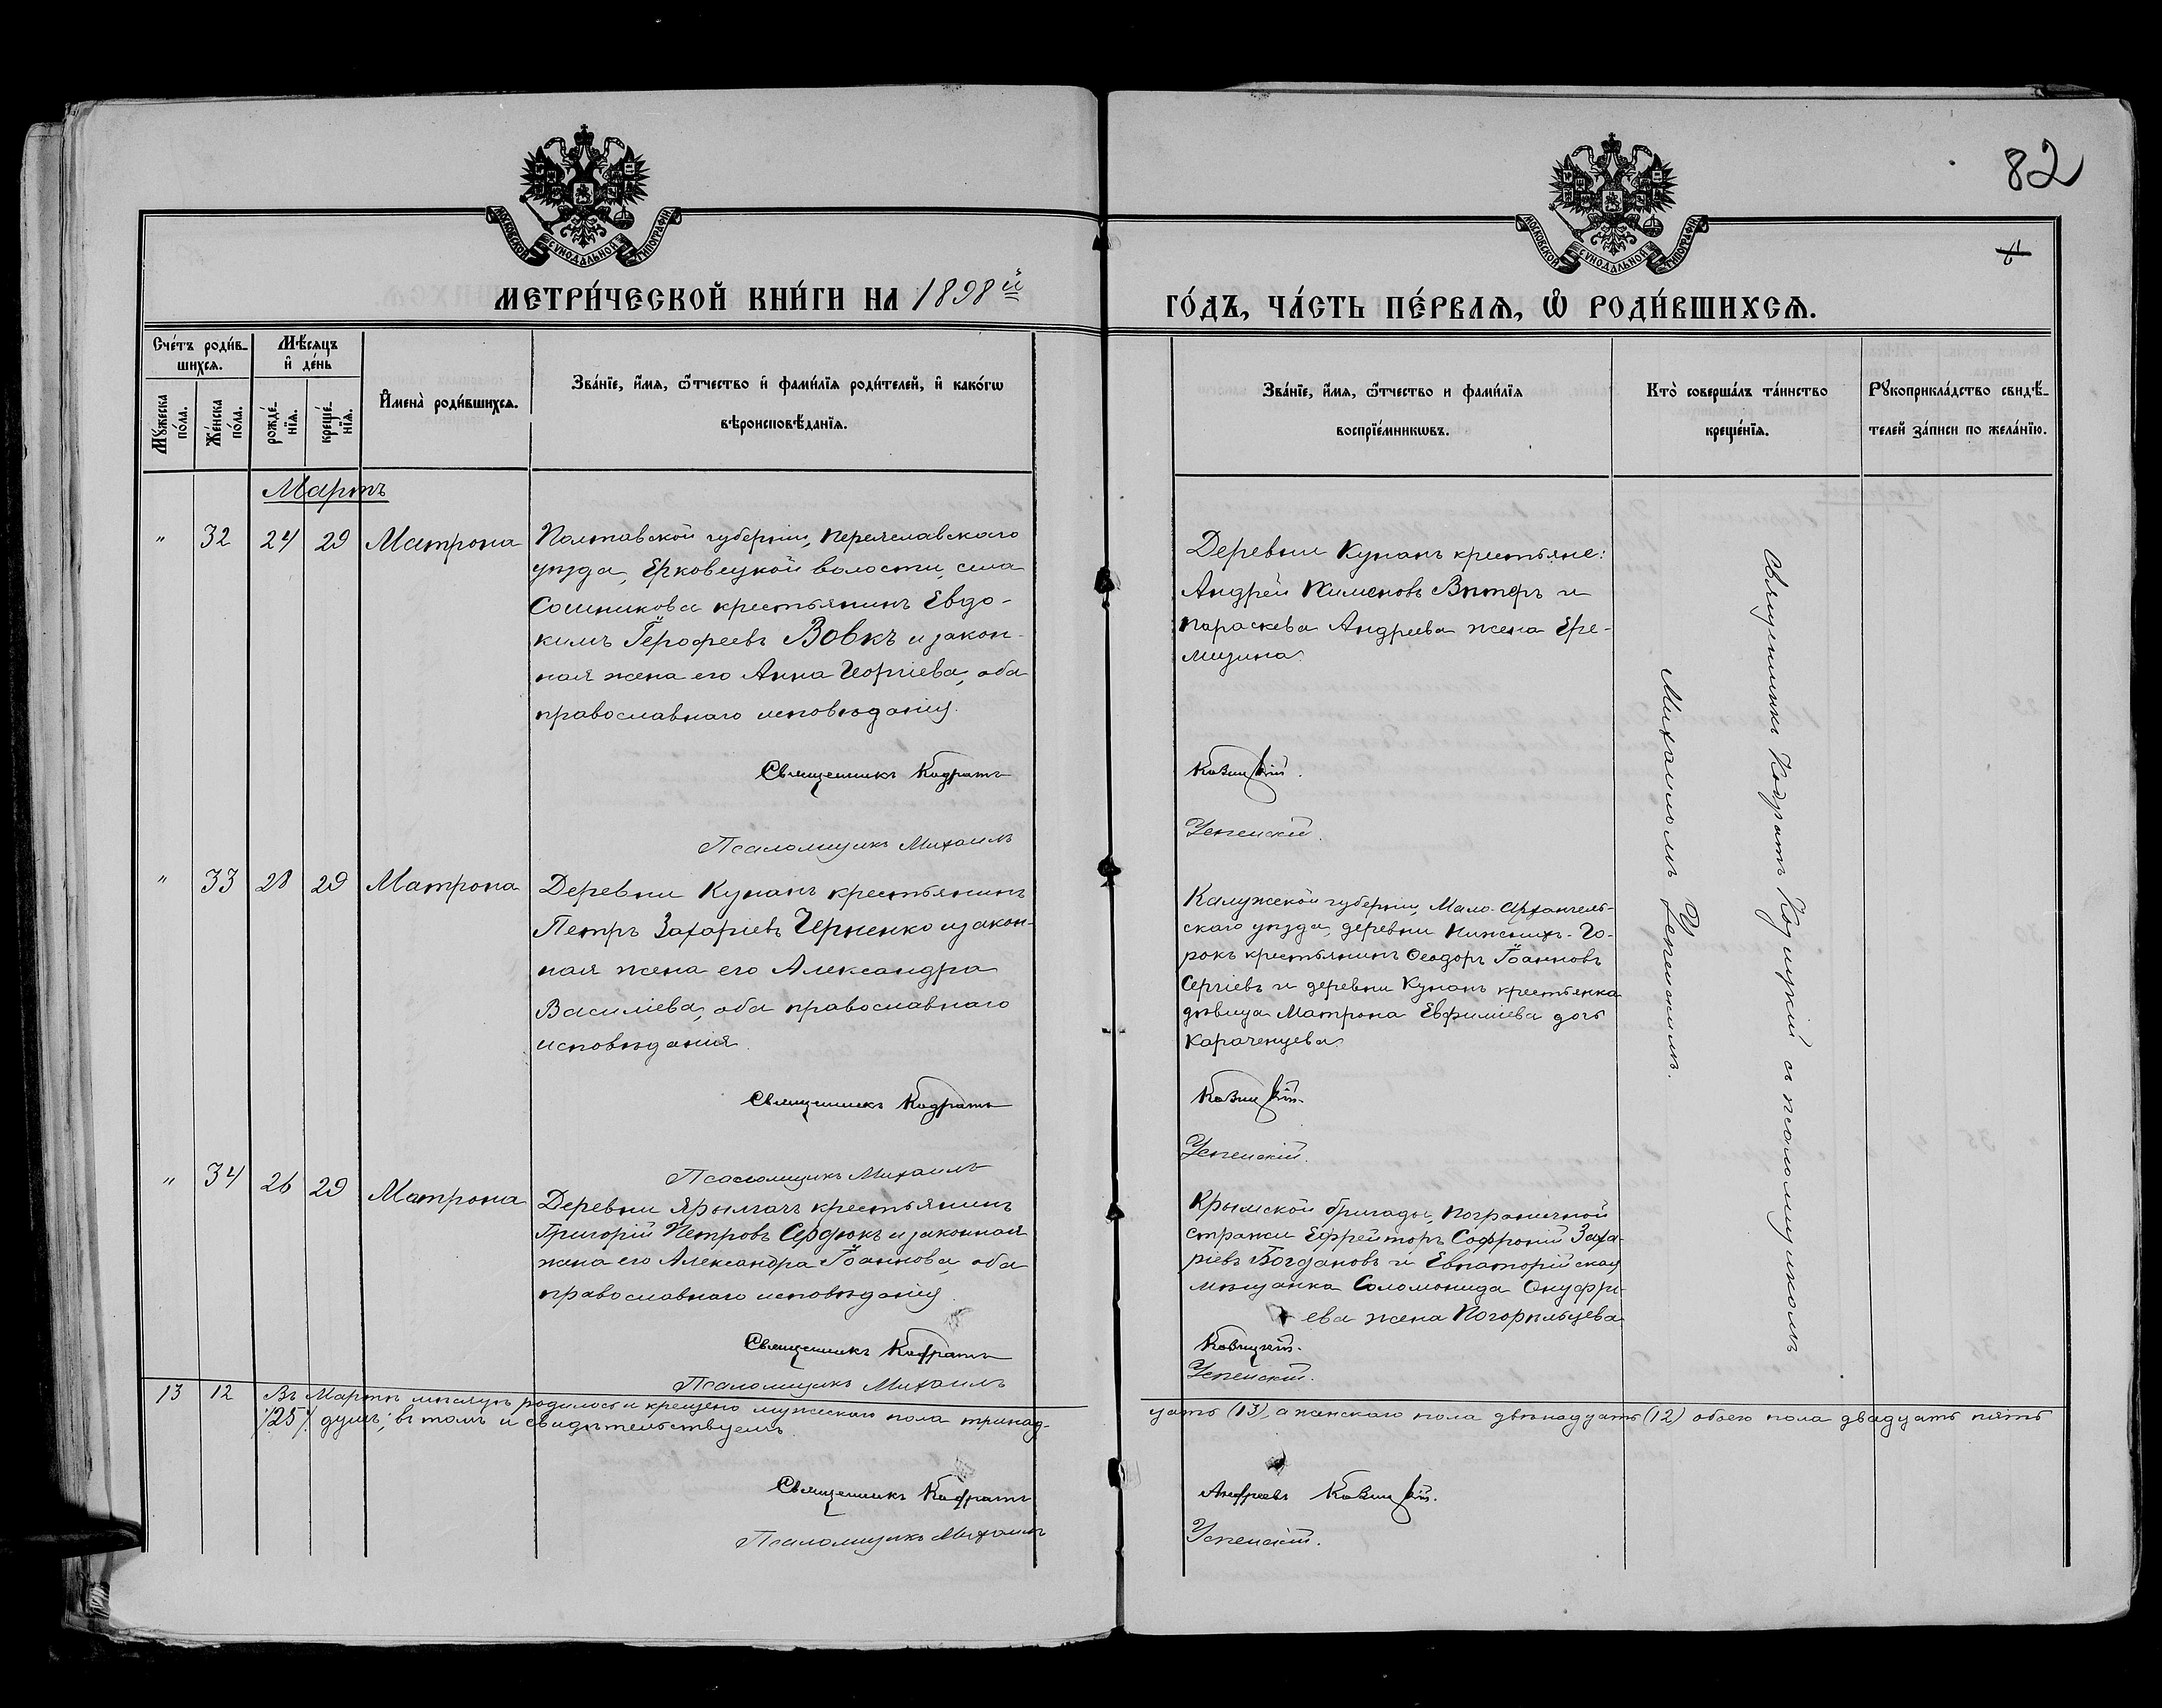 82
МОСКОВСКОЙ СѴНОДАЛЬНОЙ ТИПОГРАФІИ
МОСКОВСКОЙ СѴНОДАЛЬНОЙ ТИПОГРАФІИ
МЕТРИ́ЧЕСКОЙ КНИ́ГИ НА 1898й
ГО́ДЪ, ЧА́СТЬ ПЕ́РВАѦ, Ѡ҆ РОДИ́ВШИХСѦ.
Сче́тъ роди́в-
шихсѧ.
Мꙋ́жеска по́ла.
Же́нска по́ла.
Мѣ́сѧцъ
и҆ де́нь
рожде́-
нїѧ.
креще́-
нїѧ.
И҆мена̀ роди́вшихсѧ.
Зва́нїе, и҆́мѧ, ѻ҆́тчество и҆ фами́лїѧ роди́телей, и҆ како́гѡ
вѣроисповѣ́данїѧ.
Зва́нїе, и҆́мѧ, ѻ҆́тчество и фами́лїѧ
воспрїе́мникѡвъ.
Кто̀ соверша́лъ та́инство
креще́нїѧ.
Рꙋкоприкла́дство свидѣ́-
телей за́писи по жела́нїю.
Мартъ
" 32 24 29 Матрона
Полтавской губерніи, Переяславскаго
уѣзда, Ерковецкой волости, села
Сошникова крестьянинъ Евдо-
кимъ Іерофеевъ Вовкъ и закон-
ная жена его Анна Георгіева, оба
православнаго исповѣданія.
Священникъ Кодратъ
Псаломщикъ Михаилъ
Деревни Кунанъ крестьяне:
Андрей Пименовъ Витеръ и
Параскева Андреева жена Ере-
мизина.
Козицкій.
Успенскій.
" 33 28 29 Матрона
Деревни Кунанъ крестьянинъ
Петръ Захаріевъ Черненко и закон-
ная жена его Александра
Василіева, оба православнаго
исповѣданія.
Священникъ Кодратъ
Псаломщикъ Михаилъ
Калужской губерніи, Мало-Архангель-
скаго уѣзда, деревни Нижнихъ-Го-
рокъ крестьянинъ Ѳеодоръ Іоанновъ
Сергіевъ и деревни Кунанъ крестьянка
дѣвица Матрона Евфиміева дочь
Караченцева.
Козицкій.
Успенскій.
" 34 26 29 Матрона
Деревни Ярылгачъ крестьянинъ
Григорій Петровъ Сердюкъ и законная
жена его Александра Іоаннова, оба
православнаго исповѣданія.
Священникъ Кодратъ
Псаломщикъ Михаилъ
Крымской бригады, Пограничной
стражи Ефрейторъ Софроній Заха-
ріевъ Богдановъ и Евпаторійская
мѣщанка Соломонида Онуфрі-
ева жена Погорѣльцева
Козицкій.
Успенскій.
Священникъ Кодратъ Козицкій съ псаломщикомъ
Михаиломъ Успенскимъ.
13 12 Въ Мартѣ мѣсяцѣ родилось и крещено мужескаго пола тринад-
цать (13), а женскаго пола двѣнадцать (12) обоего пола двадцать пять
/25/ душъ; въ томъ и свидѣтельствуемъ.
Священникъ Кодратъ
Андреевъ Козицкій.
Псаломщикъ Михаилъ
Успенскій.